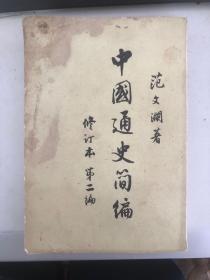 范文澜著
中國通史简編
修订本 第二编